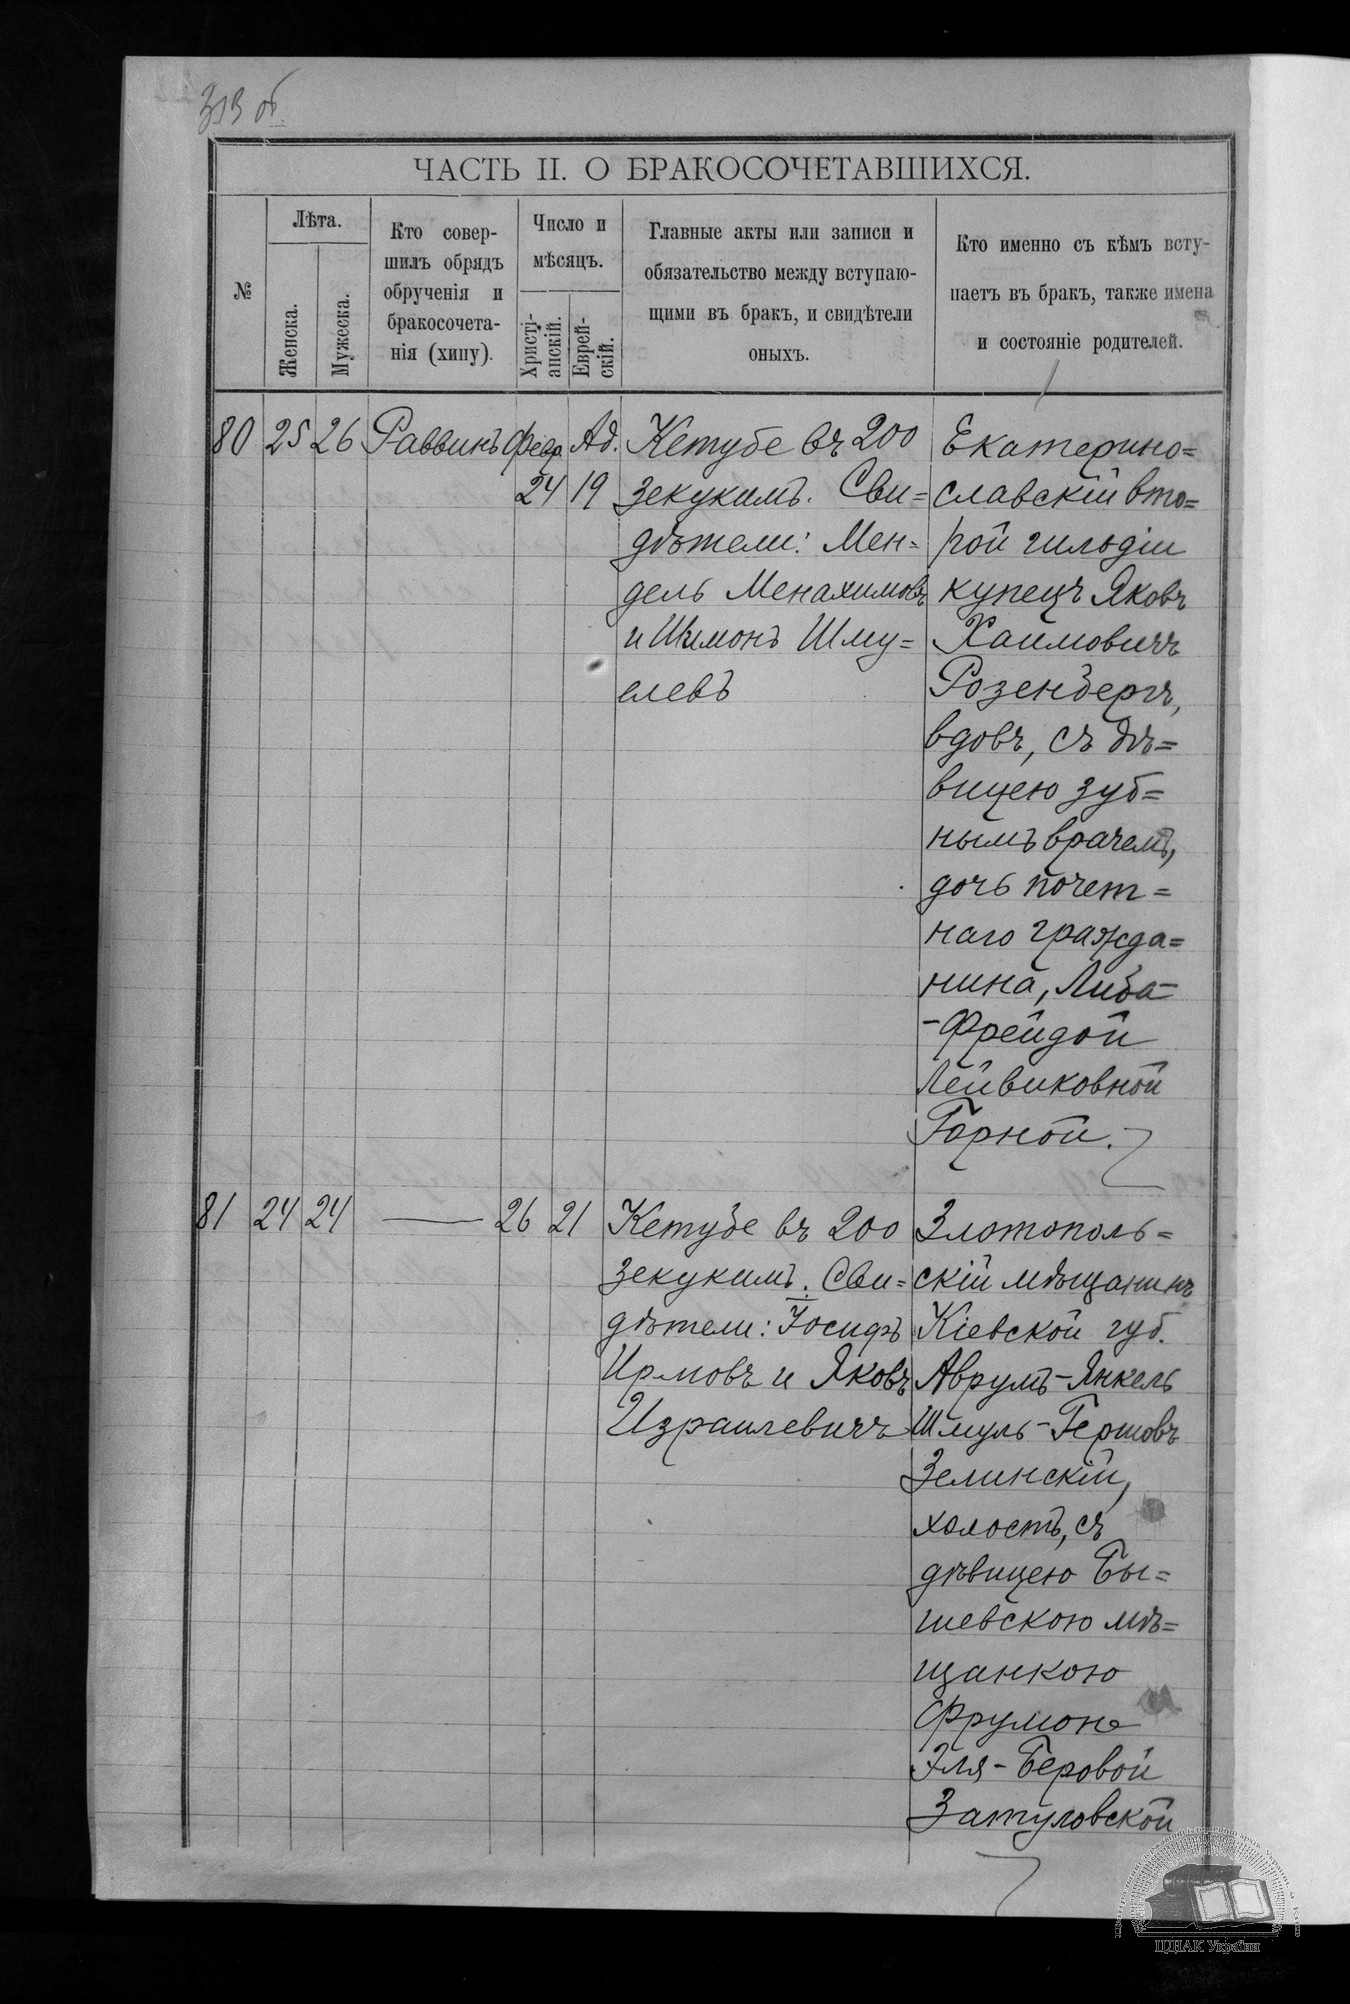 313 об.
ЧАСТЬ II. О БРАКОСОЧЕТАВШИХСЯ.
№
Лѣта.
Женска.
Мужеска.
Кто совер-
шилъ обрядъ
обрученія и
бракосочета-
нія (хипу).
Число и
мѣсяцъ.
Христі-
анскій.
Еврей-
скій.
Главные акты или записи и
обязательство между вступаю-
щими въ бракъ, и свидѣтели
оныхъ.
Кто именно съ кѣмъ всту-
паетъ въ бракъ, также имена
и состояніе родителей.
80 25 26 Раввинъ Февр. 24 Ад. 19
Кетубе въ 200
зекукимъ. Сви=
дѣтели: Мен=
дель Менахимовъ
и Шимонъ Шму=
елевъ
Екатерино=
славскій вто=
рой гильдіи
купецъ Яковъ
Хаимовичъ
Розенбергъ,
вдовъ, съ дѣ=
вицею зуб=
нымъ врачемъ,
дочь почет=
наго гражда=
нина, Либа-
-Фрейдой
Лейвиковной
Горной.
81 24 24 — 26 21
Кетубе въ 200
зекукимъ. Сви=
дѣтели: Іосифъ
Ирмовъ и Яковъ
Израилевичъ
Златополь=
скій мѣщанинъ
Кіевской губ.
Аврумъ-Янкель
Шмуль-Гершовъ
Зелинскій,
холостъ, съ
дѣвицею Бы=
шевскою мѣ=
щанкою
Фрумою
Эля-Беровой
Затуловской
ЦДІАК України